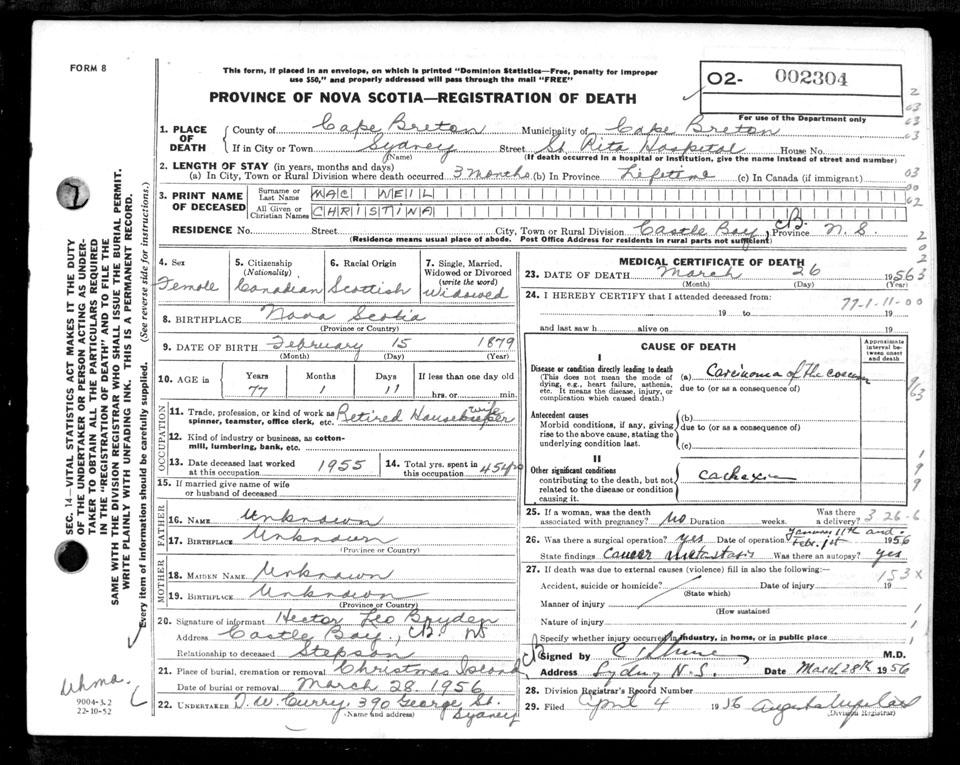 FORM 8
This form, if placed in an envelope, on which is printed "Dominion Statistics—Free, penalty for improper
use $50," and properly addressed will pass through the mail "FREE"
PROVINCE OF NOVA SCOTIA—REGISTRATION OF DEATH
O2- 002304
For use of the Department only
1. PLACE OF DEATH
County of Cape Breton Municipality of Cape Breton
If in City or Town Sydney Street St. Rita Hospital House No.
(Name) (If death occurred in a hospital or institution, give the name instead of street and number)
2. LENGTH OF STAY (in years, months and days)
(a) In City, Town or Rural Division where death occurred 3 Months (b) In Province Lifetime (c) In Canada (if immigrant)
3. PRINT NAME OF DECEASED
Surname or Last Name MAC NEIL
All Given or Christian Names CHRISTINA
RESIDENCE No. Street City, Town or Rural Division Castle Bay C.B. Province N.S.
(Residence means usual place of abode. Post Office Address for residents in rural parts not sufficient)
4. Sex Female
5. Citizenship (Nationality) Canadian
6. Racial Origin Scottish
7. Single, Married, Widowed or Divorced (write the word) Widowed
8. BIRTHPLACE Nova Scotia
(Province or Country)
9. DATE OF BIRTH February 15 1879
(Month) (Day) (Year)
10. AGE in Years 77 Months 1 Days 11 If less than one day old
hrs. or min.
OCCUPATION
11. Trade, profession, or kind of work as spinner, teamster, office clerk, etc. Retired Housekeeper wife
12. Kind of industry or business, as cotton-mill, lumbering, bank, etc.
13. Date deceased last worked at this occupation 1955
14. Total yrs. spent in this occupation 45 yrs
15. If married give name of wife or husband of deceased
FATHER
16. NAME Unknown
17. BIRTHPLACE Unknown
(Province or Country)
MOTHER
18. MAIDEN NAME Unknown
19. BIRTHPLACE Unknown
(Province or Country)
20. Signature of informant Hector Leo Bryden
Address Castle Bay, C.B. NS
Relationship to deceased Stepson
21. Place of burial, cremation or removal Christmas Island
Date of burial or removal March 28. 1956
22. UNDERTAKER D. W. Curry, 390 George St.
(Name and address) Sydney
MEDICAL CERTIFICATE OF DEATH
23. DATE OF DEATH March 26 1956
(Month) (Day) (Year)
24. I HEREBY CERTIFY that I attended deceased from:
77-1-11-00
19 to 19
and last saw h alive on 19
CAUSE OF DEATH
Approximate interval between onset and death
I
Disease or condition directly leading to death
(This does not mean the mode of dying, e.g., heart failure, asthenia, etc. It means the disease, injury, or complication which caused death.)
(a) Carcinoma of the coecum
due to (or as a consequence of)
Antecedent causes
Morbid conditions, if any, giving rise to the above cause, stating the underlying condition last.
(b)
due to (or as a consequence of)
(c)
II
Other significant conditions
contributing to the death, but not related to the disease or condition causing it.
cachexia
25. If a woman, was the death associated with pregnancy? No Duration weeks. Was there a delivery?
3 26-6
26. Was there a surgical operation? yes Date of operation January 11th and Feb. 1st 1956
State findings Cancer metastasis Was there an autopsy? yes
27. If death was due to external causes (violence) fill in also the following:—
153X
Accident, suicide or homicide? Date of injury 19
(State which)
Manner of injury
(How sustained)
Nature of injury
Specify whether injury occurred in industry, in home, or in public place
Signed by M.D.
Address Sydney N.S. Date March 28th 1956
28. Division Registrar's Record Number
29. Filed April 4 1956
(Division Registrar)
SEC. 14—VITAL STATISTICS ACT MAKES IT THE DUTY
OF THE UNDERTAKER OR PERSON ACTING AS UNDER-
TAKER TO OBTAIN ALL THE PARTICULARS REQUIRED
IN THE "REGISTRATION OF DEATH" AND TO FILE THE
SAME WITH THE DIVISION REGISTRAR WHO SHALL ISSUE THE BURIAL PERMIT.
WRITE PLAINLY WITH UNFADING INK. THIS IS A PERMANENT RECORD.
Every item of information should be carefully supplied. (See reverse side for instructions.)
9004-3.2
22-10-52